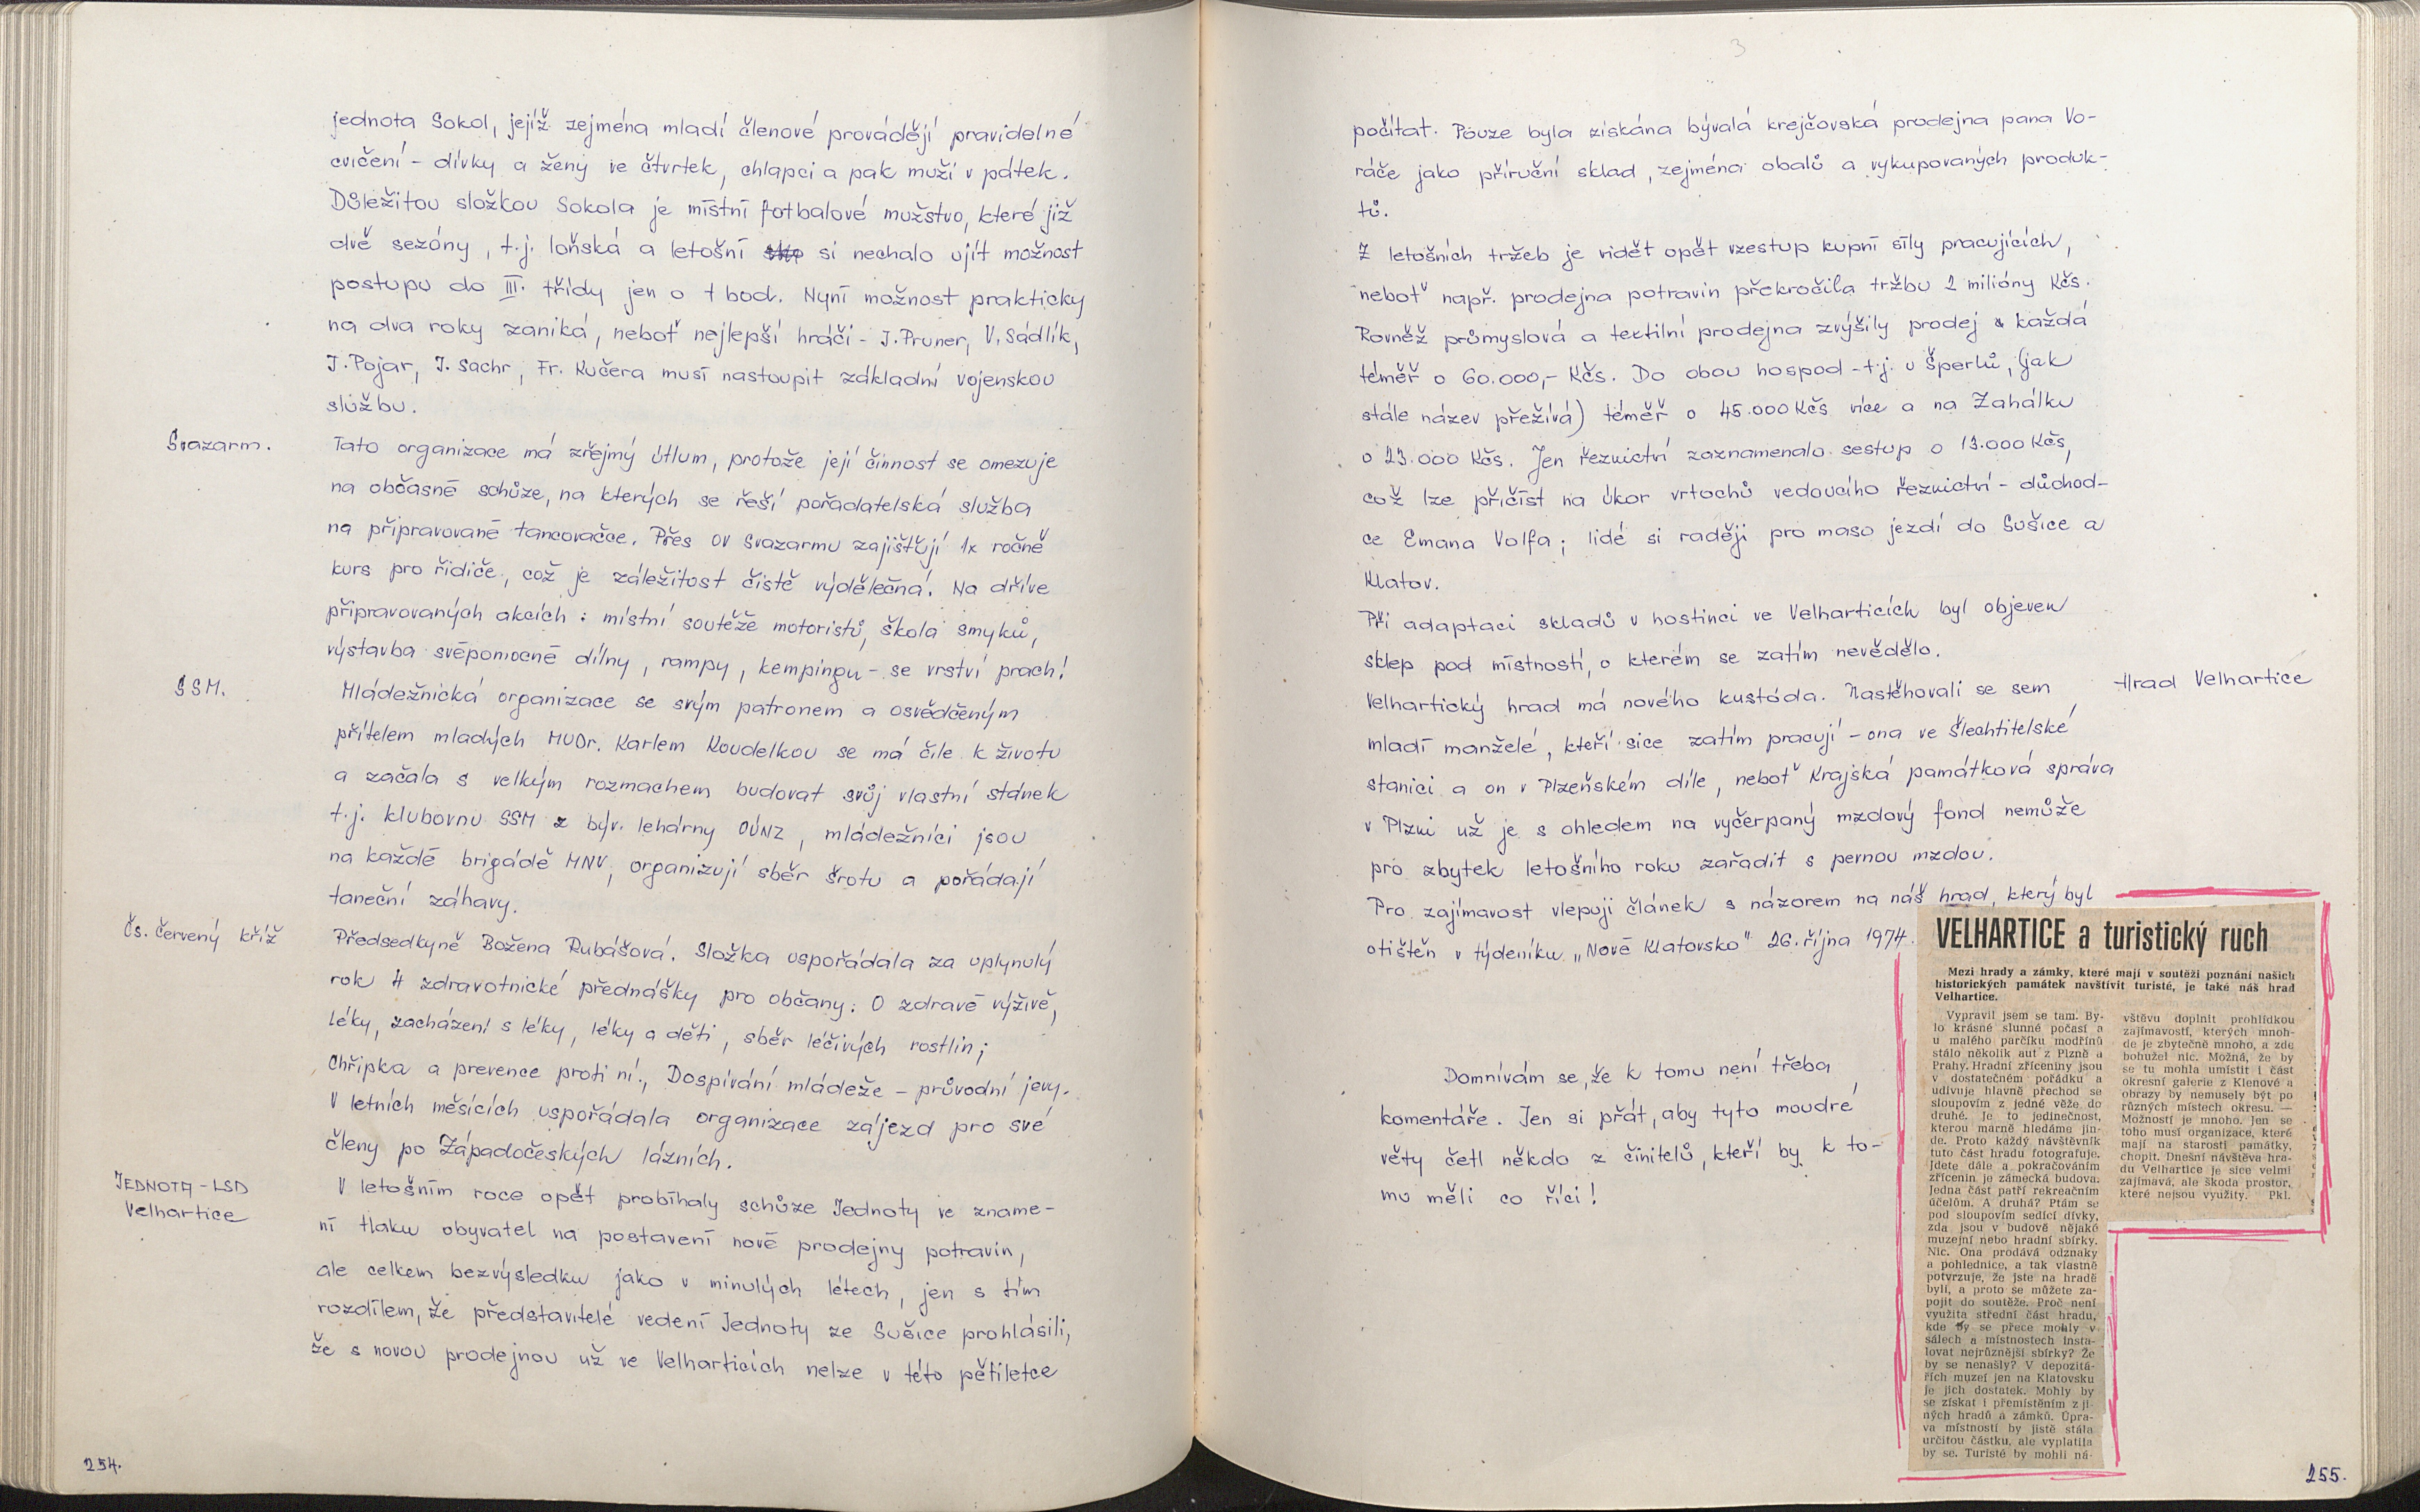 jednota Sokol, jejíž zejména mladí členové provádějí pravidelné
cvičení - dívky a ženy ve čtvrtek, chlapci a pak muži v pátek.
Důležitou složkou Sokola je místní fotbalové mužstvo, které již
dvě sezóny, t.j. loňská a letošní si nechalo ujít možnost
postupu do III. třídy jen o 1 bod. Nyní možnost prakticky
na dva roky zaniká, neboť nejlepší hráči - J. Pruner, V. Sádlík,
J. Pojar, J. Sachr, Fr. Kučera musí nastoupit základní vojenskou
službu.
Svazarm.
Tato organizace má zřejmý útlum, protože její činnost se omezuje
na občasné schůze, na kterých se řeší pořadatelská služba
na připravované tancovačce. Přes OV Svazarmu zajišťují 1x ročně
kurs pro řidiče, což je záležitost čistě výdělečná. Na dříve
připravovaných akcích: místní soutěže motoristů, škola smyků,
výstavba svépomocné dílny, rampy, kempingu - se vrství prach!
SSM.
Mládežnická organizace se svým patronem a osvědčeným
přítelem mladých MUDr. Karlem Koudelkou se má čile k životu
a začala s velkým rozmachem budovat svůj vlastní stánek
t.j. klubovnu SSM z býv. lehárny OÚNZ, mládežníci jsou
na každé brigádě MNV, organizují sběr šrotu a pořádají
taneční záhavy.
Čs. červený kříž
Předsedkyně Božena Rubášová. Složka uspořádala za uplynulý
rok 4 zdravotnické přednášky pro občany: O zdravé výživě,
léky, zacházení s léky, léky a děti, sběr léčivých rostlin;
Chřipka a prevence proti ní., Dospívání mládeže - průvodní jevy.
V letních měsících uspořádala organizace zájezd pro své
členy po Západočeských lázních.
JEDNOTA - LSD
Velhartice
V letošním roce opět probíhaly schůze Jednoty ve zname-
ní tlaku obyvatel na postavení nové prodejny potravin,
ale celkem bezvýsledku jako v minulých létech, jen s tím
rozdílem, že představitelé vedení Jednoty ze Sušice prohlásili,
že s novou prodejnou už ve Velharticích nelze v této pětiletce
254.
3
počítat. Pouze byla získána bývalá krejčovská prodejna pana Vo-
ráče jako příruční sklad, zejména obalů a vykupovaných produk-
tů.
Z letošních tržeb je vidět opět vzestup kupní síly pracujících,
neboť např. prodejna potravin překročila tržbu 2 milióny Kčs.
Rovněž průmyslová a textilní prodejna zvýšily prodej každá
téměř o 60.000,- Kčs. Do obou hospod - t.j. u Šperlů, (jak
stále název přežívá) téměř o 45.000 Kčs více a na Zahálku
o 23.000 Kčs. Jen řeznictví zaznamenalo sestup o 13.000 Kčs,
což lze přičíst na úkor vrtochů vedoucího řeznictví - důchod-
ce Emana Volfa; lidé si raději pro maso jezdí do Sušice a
Klatov.
Při adaptaci skladů v hostinci ve Velharticích byl objeven
sklep pod místností, o kterém se zatím nevědělo.
Hrad Velhartice
Velhartický hrad má nového kustóda. Nastěhovali se sem
mladí manželé, kteří sice zatím pracují - ona ve Šlechtitelské
stanici a on v Plzeňském díle, neboť Krajská památková správa
v Plzni už je s ohledem na vyčerpaný mzdový fond nemůže
pro zbytek letošního roku zařadit s pevnou mzdou.
Pro zajímavost vlepuji článek s názorem na náš hrad, který byl
otištěn v týdeníku „Nové Klatovsko" 26. října 1974.
Domnívám se, že k tomu není třeba
komentáře. Jen si přát, aby tyto moudré
věty četl někdo z činitelů, kteří by k to-
mu měli co říci!
VELHARTICE a turistický ruch
Mezi hrady a zámky, které mají v soutěži poznání našich
historických památek navštívit turisté, je také náš hrad
Velhartice.
Vypravil jsem se tam. By-
lo krásné slunné počasí a
u malého parčíku modřínů
stálo několik aut z Plzně a
Prahy. Hradní zříceniny jsou
v dostatečném pořádku a
udivuje hlavně přechod se
sloupovím z jedné věže do
druhé. Je to jedinečnost,
kterou marně hledáme jin-
de. Proto každý návštěvník
tuto část hradu fotografuje.
Jdete dále a pokračováním
zřícenin je zámecká budova.
Jedna část patří rekreačním
účelům. A druhá? Ptám se
pod sloupovím sedící dívky,
zda jsou v budově nějaké
muzejní nebo hradní sbírky.
Nic. Ona prodává odznaky
a pohlednice, a tak vlastně
potvrzuje, že jste na hradě
byli, a proto se můžete za-
pojit do soutěže. Proč není
využita střední část hradu,
kde by se přece mohly v
sálech a místnostech insta-
lovat nejrůznější sbírky? Že
by se nenašly? V depozitá-
řích muzeí jen na Klatovsku
je jich dostatek. Mohly by
se získat i přemístěním z ji-
ných hradů a zámků. Úpra-
va místností by jistě stála
určitou částku, ale vyplatila
by se. Turisté by mohli ná-
vštěvu doplnit prohlídkou
zajímavostí, kterých mnoh-
de je zbytečně mnoho, a zde
bohužel nic. Možná, že by
se tu mohla umístit i část
okresní galerie z Klenové a
obrazy by nemusely být po
různých místech okresu. —
Možností je mnoho. Jen se
toho musí organizace, které
mají na starosti památky,
chopit. Dnešní návštěva hra-
du Velhartice je sice velmi
zajímavá, ale škoda prostor,
které nejsou využity. Pkl.
255.